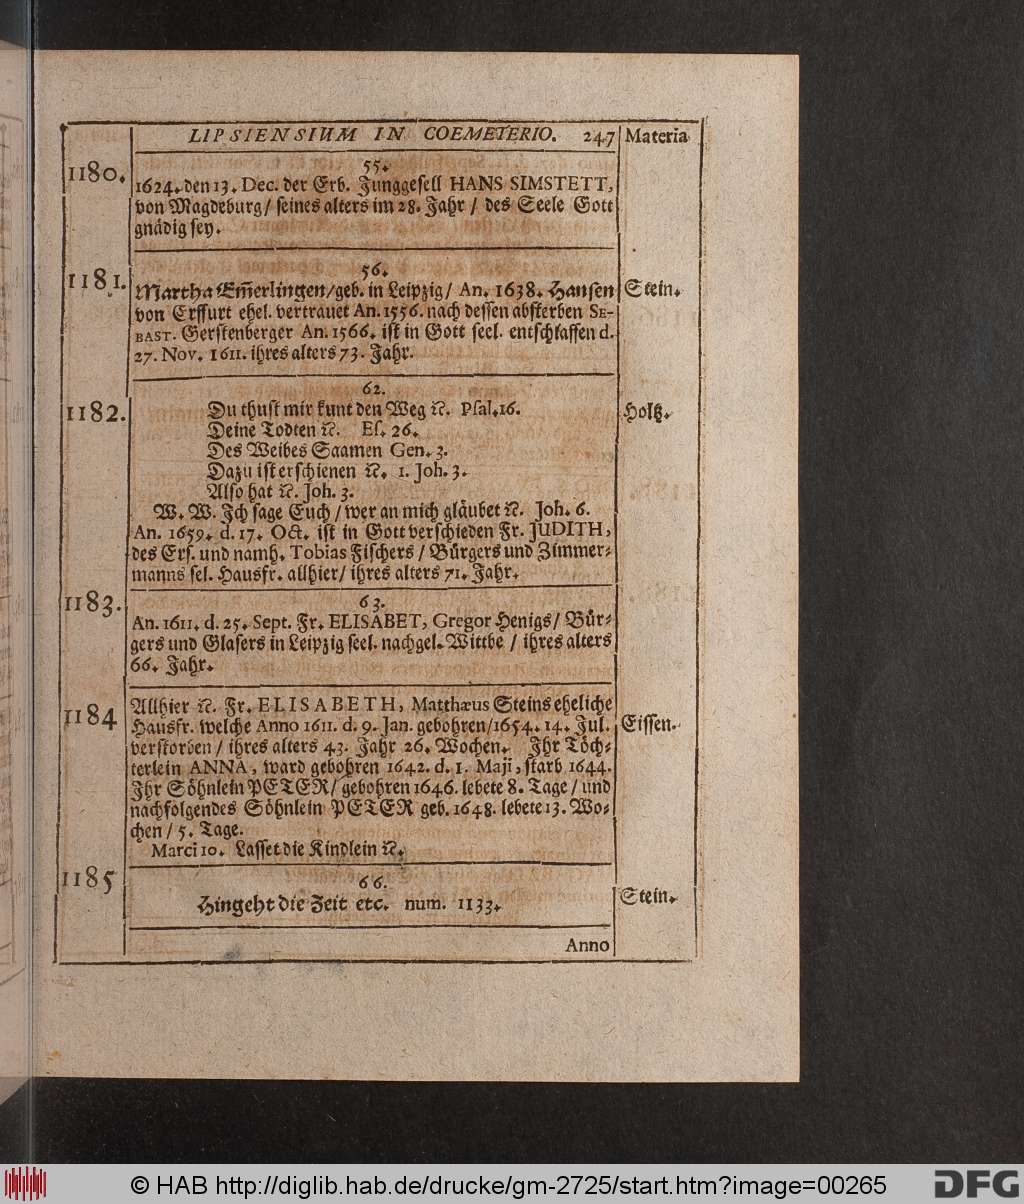 LIPSIENSIUM IN COEMETERIO. 247 Materia
1180. 55.
1624. den 13. Dec. der Erb. Junggesell HANS SIMSTETT,
von Magdeburg / seines alters im 28. Jahr / des Seele Gott
gnädig sey.
1181. 56.
Martha Em̄erlingen / geb. in Leipzig / An. 1638. Hansen Stein.
von Erffurt ehel. vertrauet An. 1556. nach dessen absterben SE-
BAST. Gerstenberger An. 1566. ist in Gott seel. entschlaffen d.
27. Nov. 1611. ihres alters 73. Jahr.
62.
1182. Du thust mir kunt den Weg ꝛc. Psal. 16. Holtz.
Deine Todten ꝛc. Es. 26.
Des Weibes Saamen Gen. 3.
Dazu ist erschienen ꝛc. 1. Joh. 3.
Also hat ꝛc. Joh. 3.
W. W. Ich sage Euch / wer an mich gläubet ꝛc. Joh. 6.
An. 1659. d. 17. Oct. ist in Gott verschieden Fr. JUDITH,
des Ers. und namh. Tobias Fischers / Bürgers und Zimmer-
manns sel. Hausfr. allhier / ihres alters 71. Jahr.
1183. 63.
An. 1611. d. 25. Sept. Fr. ELISABET, Gregor Henigs / Bür-
gers und Glasers in Leipzig seel. nachgel. Wittbe / ihres alters
66. Jahr.
Allhier ꝛc. Fr. ELISABETH, Matthæus Steins eheliche
1184 Hausfr. welche Anno 1611. d. 9. Jan. gebohren / 1654. 14. Jul. Eissen.
verstorben / ihres alters 43. Jahr 26. Wochen. Ihr Töch-
terlein ANNA, ward gebohren 1642. d. 1. Maji, starb 1644.
Ihr Söhnlein PETER / gebohren 1646. lebete 8. Tage / und
nachfolgendes Söhnlein PETER geb. 1648. lebete 13. Wo-
chen / 5. Tage.
Marci 10. Lasset die Kindlein ꝛc.
1185 66.
Hingeht die Zeit etc. num. 1133. Stein.
Anno
© HAB http://diglib.hab.de/drucke/gm-2725/start.htm?image=00265
DFG